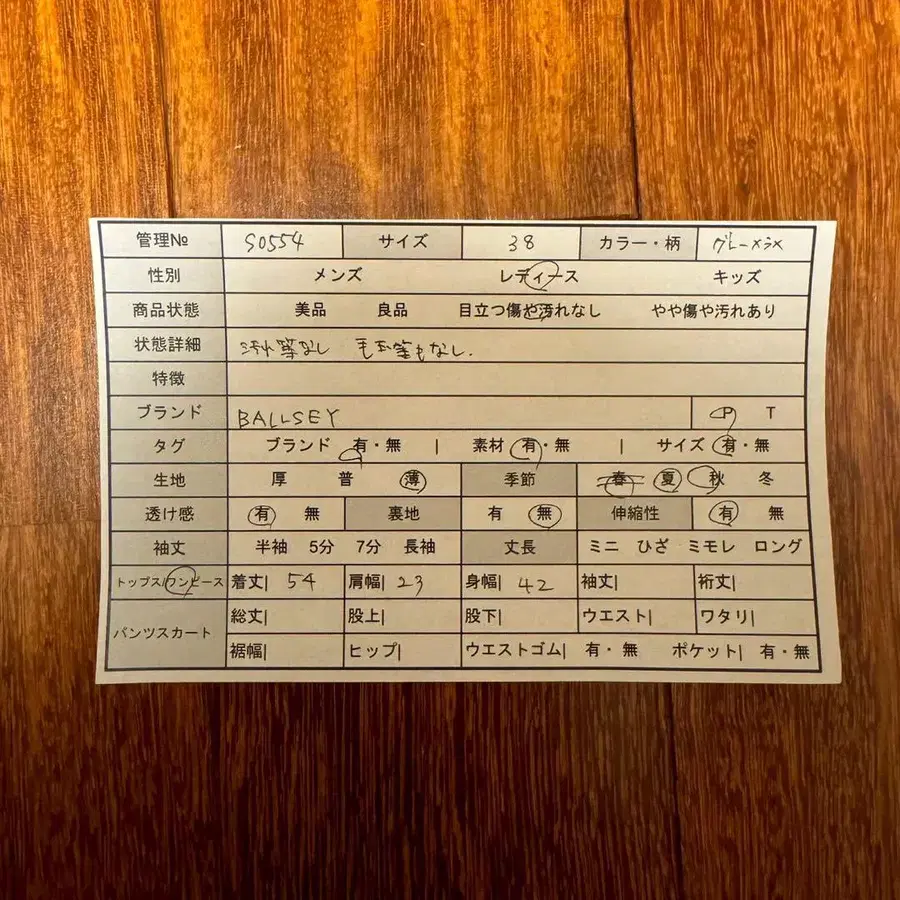 管理№ S0554 サイズ 38 カラー・柄 グレー×ラメ
性別 メンズ レディース キッズ
商品状態 美品 良品 目立つ傷や汚れなし やや傷や汚れあり
状態詳細 汚れ等なし 毛玉等もなし.
特徴
ブランド BALLSEY P T
タグ ブランド 有・無 | 素材 有・無 | サイズ 有・無
生地 厚 普 薄 季節 春 夏 秋 冬
透け感 有 無 裏地 有 無 伸縮性 有 無
袖丈 半袖 5分 7分 長袖 丈長 ミニ ひざ ミモレ ロング
トップス/ワンピース 着丈| 54 肩幅| 23 身幅| 42 袖丈| 裄丈|
パンツスカート 総丈| 股上| 股下| ウエスト| ワタリ|
裾幅| ヒップ| ウエストゴム| 有・無 ポケット| 有・無